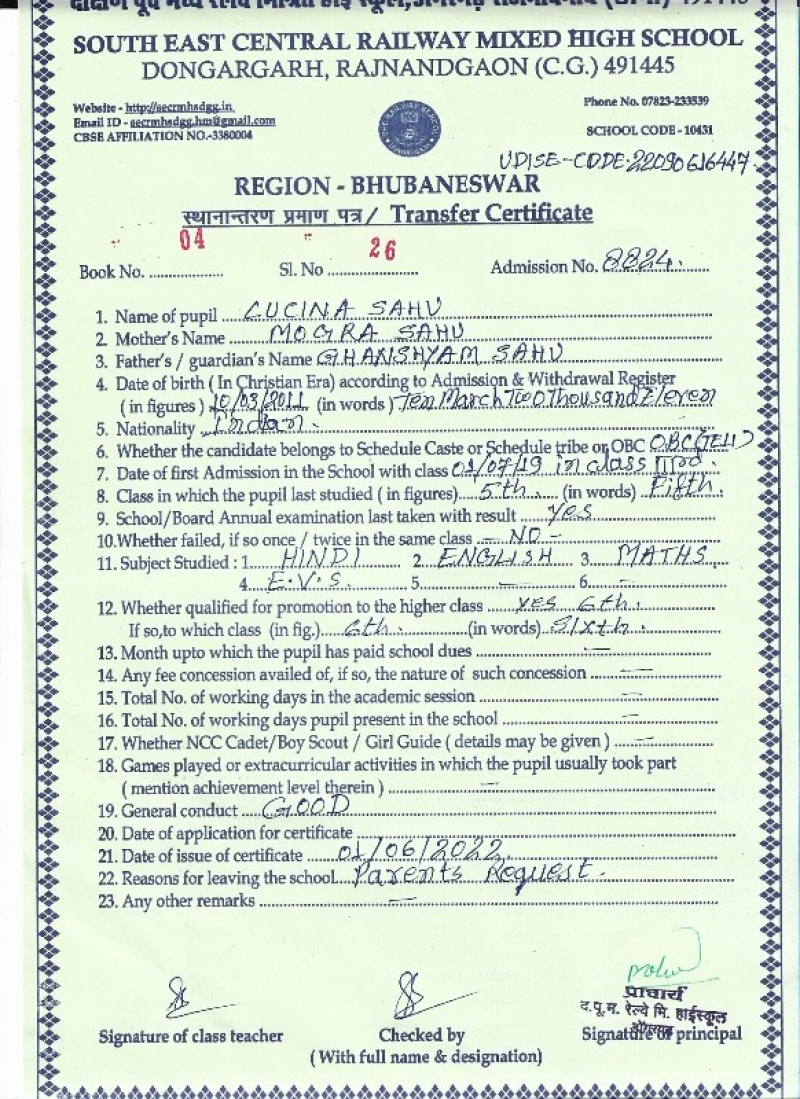 SOUTH EAST CENTRAL RAILWAY MIXED HIGH SCHOOL
DONGARGARH, RAJNANDGAON (C.G.) 491445
Website - http://secrmhsdgg.in
Phone No. 07823-233539
Email ID - secrmhsdgg.hm@gmail.com
CBSE AFFILIATION NO.-3380004
SCHOOL CODE - 10431
UDISE-CODE-22090616447
REGION - BHUBANESWAR
स्थानान्तरण प्रमाण पत्र / Transfer Certificate
Book No. 04 Sl. No 26 Admission No. 8824
1. Name of pupil LUCINA SAHU
2. Mother's Name MOGRA SAHU
3. Father's / guardian's Name GHANSHYAM SAHU
4. Date of birth ( In Christian Era) according to Admission & Withdrawal Register
(in figures ) 10/03/2011 (in words ) Ten March Two Thousand Eleven
5. Nationality Indian.
6. Whether the candidate belongs to Schedule Caste or Schedule tribe or OBC OBC (TELI)
7. Date of first Admission in the School with class 01/07/19 in class IInd.
8. Class in which the pupil last studied ( in figures) 5th (in words) Fifth.
9. School/Board Annual examination last taken with result yes
10.Whether failed, if so once / twice in the same class - NO -
11. Subject Studied : 1. HINDI 2. ENGLISH 3. MATHS
4. E.V.S. 5. — 6. —
12. Whether qualified for promotion to the higher class yes 6th.
If so,to which class (in fig.) 6th. (in words) Sixth.
13. Month upto which the pupil has paid school dues —
14. Any fee concession availed of, if so, the nature of such concession —
15. Total No. of working days in the academic session —
16. Total No. of working days pupil present in the school —
17. Whether NCC Cadet/Boy Scout / Girl Guide ( details may be given ) —
18. Games played or extracurricular activities in which the pupil usually took part
( mention achievement level therein ) —
19. General conduct GOOD
20. Date of application for certificate
21. Date of issue of certificate 01/06/2022
22. Reasons for leaving the school Parents Request.
23. Any other remarks —
प्राचार्य
द.पू.म. रेल्वे मि. हाईस्कूल
Signature of class teacher Checked by Signature of principal
(With full name & designation)